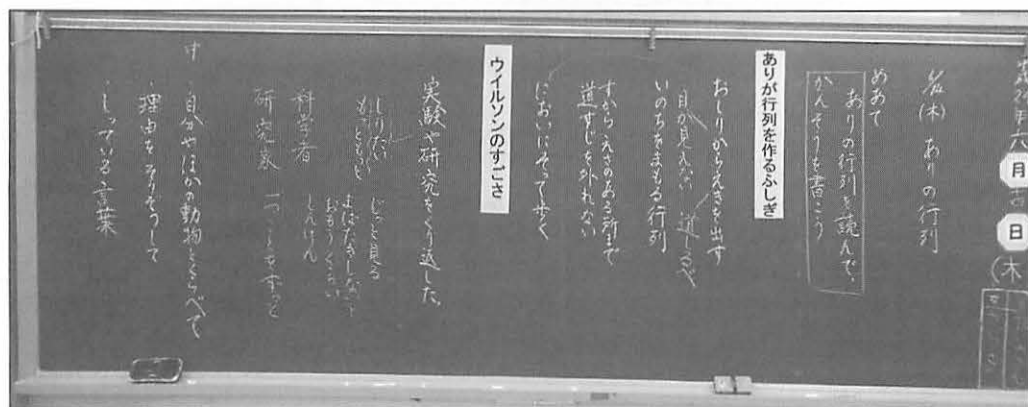 六月
日
(木)
名(木) ありの行列
めあて
ありの行列を読んで、
かんそうを書こう
ありが行列を作るふしぎ
おしりからえきを出す
目が見えない 道しるべ
いのちをまもる行列
すからえさのある所まで
道すじを外れない
においにそって歩く
ウイルソンのすごさ
実験や研究をくり返した。
しりたい
もっともっと
じっと見る
まばたきしないで
おもうくらい
科学者 しんけん
研究象 一つことをずっと
中 自分やほかの動物とくらべて
・理由をそうぞうして
・しっている言葉